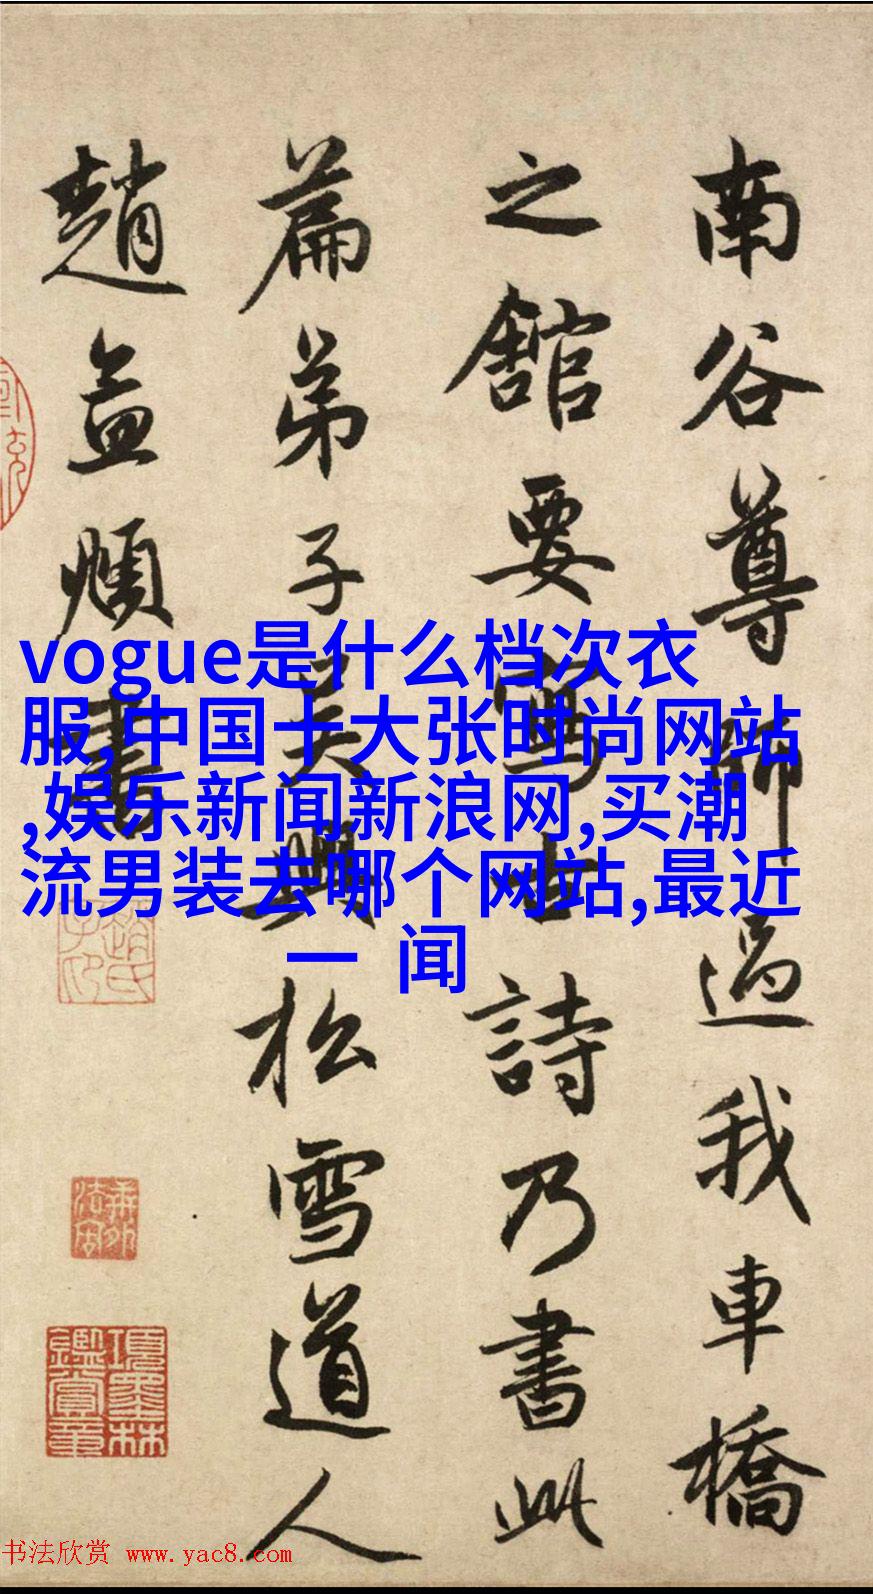 南谷尊師過我車橋
之舘要寫古詩乃書此
篇弟子吳興松雪道人
趙孟頫書
vogue是什么档次衣
服,中国十大张时尚网站
,娱乐新闻新浪网,买潮
流男装去哪个网站,最近
一 闻
趙氏子印
項墨林鑑賞章
书法欣赏 www.yac8.com